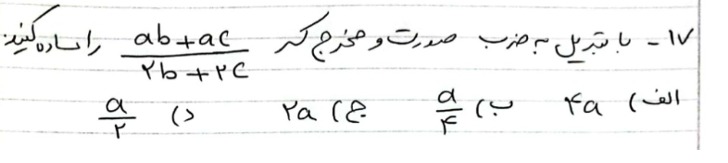 ۱۷ - با تبدیل به ضرب صورت و مخرج کسر (ab+ac)/(۲b+۲c) را ساده کنید.
الف) ۴a ب) a/۴ ج) ۲a د) a/۲